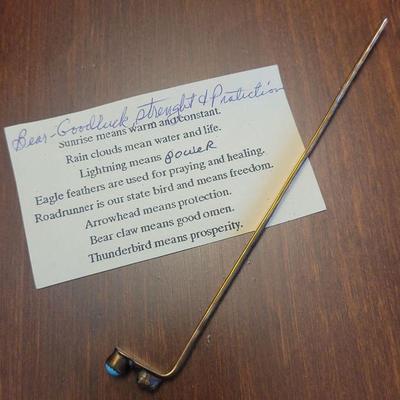 Bear - Goodluck, strenght & Protection
Sunrise means warm and constant.
Rain clouds mean water and life.
Lightning means power
Eagle feathers are used for praying and healing.
Roadrunner is our state bird and means freedom.
Arrowhead means protection.
Bear claw means good omen.
Thunderbird means prosperity.